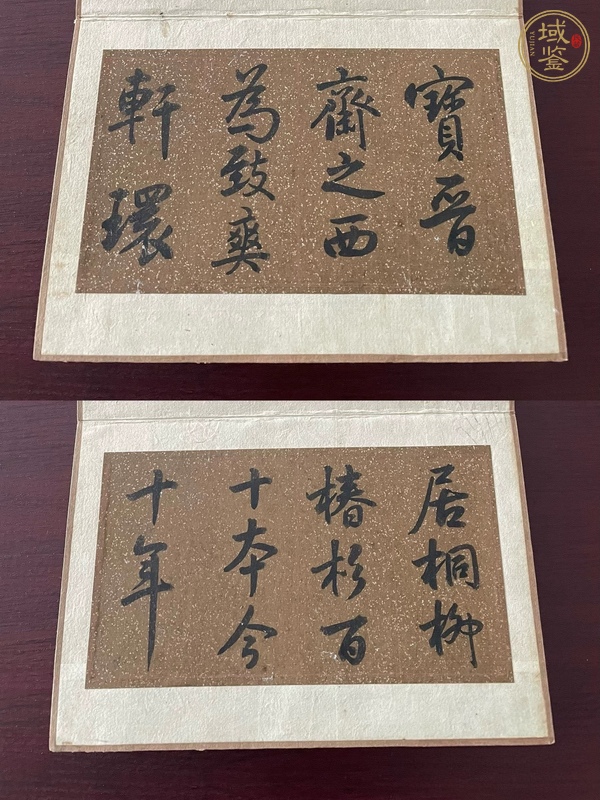 域鉴
YUJIAN
寶晉
齋之西
為致爽
軒環
居桐柳
椿杉百
十本今
十年